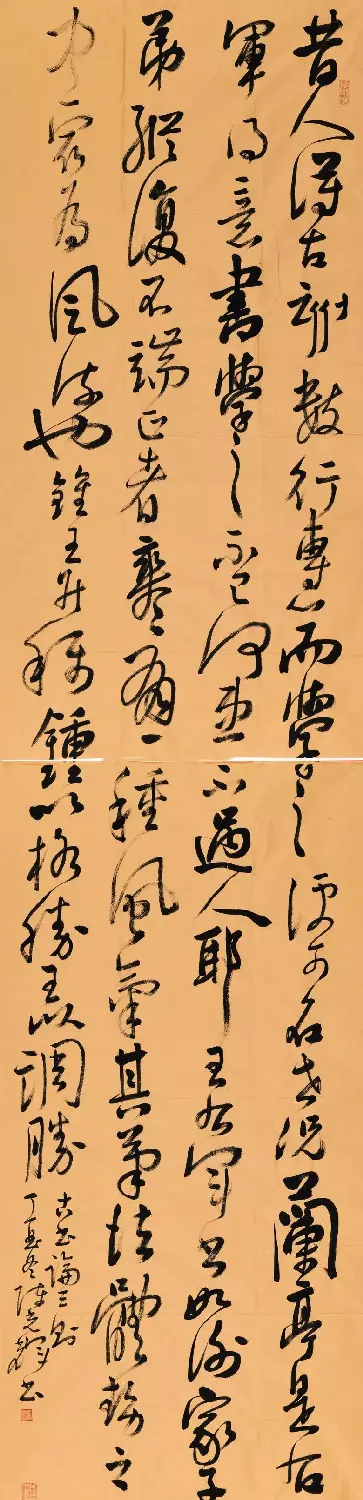 昔人得古刻數行專心而學之便可名世况蘭亭是右
軍得意書學之不已何患不過人耶王右軍書如謝家子
弟縱復不端正者爽爽有一種風氣其筆法體勢之
中最為風流也鍾王並稱鍾以格勝王以調勝
古書論三則
丁酉冬陳書